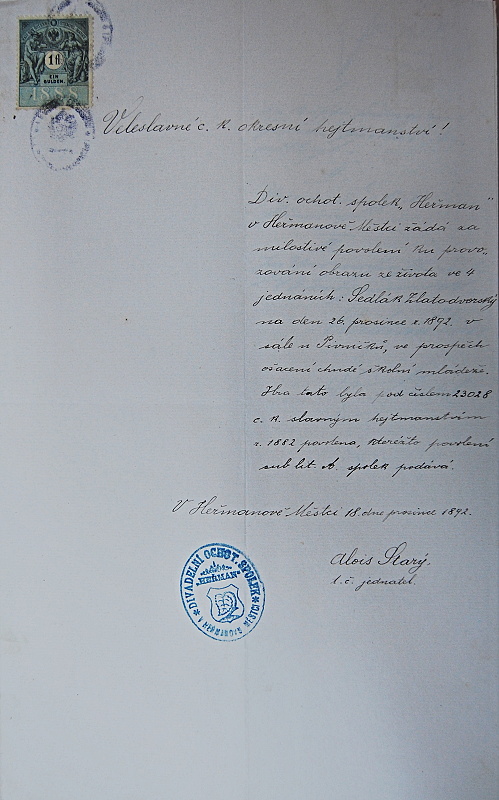 1 fl
EIN
GULDEN.
1888
Veleslavné c. k. okresní hejtmanství!
Div. ochot. spolek „Heřman"
v Heřmanově Městci žádá za
milostivé povolení ku provo„
zování obrazu ze života ve 4
jednáních: Sedlák Zlatodvorský
na den 26. prosince r. 1892. v
sále u Pivničků, ve prospěch
ošacení chudé školní mládeže.
Hra tato byla pod číslem 23028
c. k. slavným hejtmanstvím
r. 1882 povolena, kteréžto povolení
sub lit. A. spolek podává.
V Heřmanově Městci 18. dne prosince 1892.
Alois Starý,
t. č. jednatel.
DIVADELNÍ OCHOT. SPOLEK
"HEŘMAN"